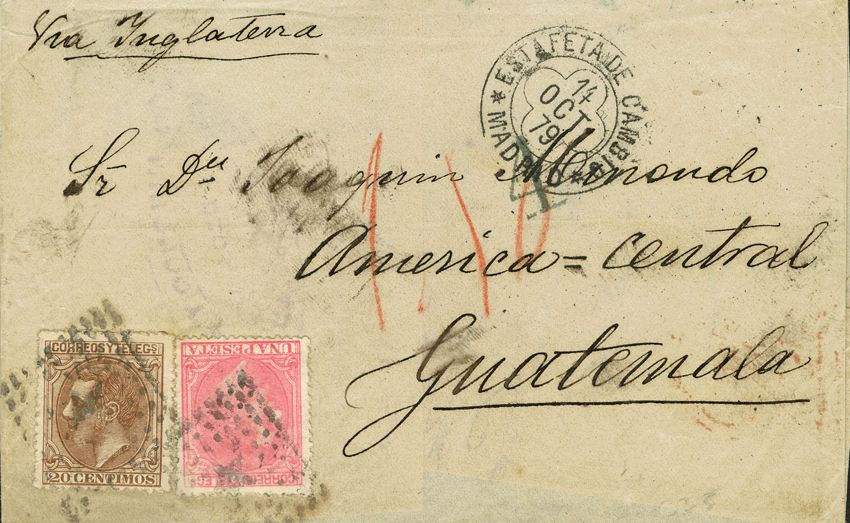 Via Inglaterra
* ESTAFETA DE CAMBIO * MADRID
14
OCT
79
Sr. Dn Joaquin
America = Central
Guatemala
CORREOS Y TELEGS
20 CENTIMOS
UNA PESETA
CORREOS Y TELEGS